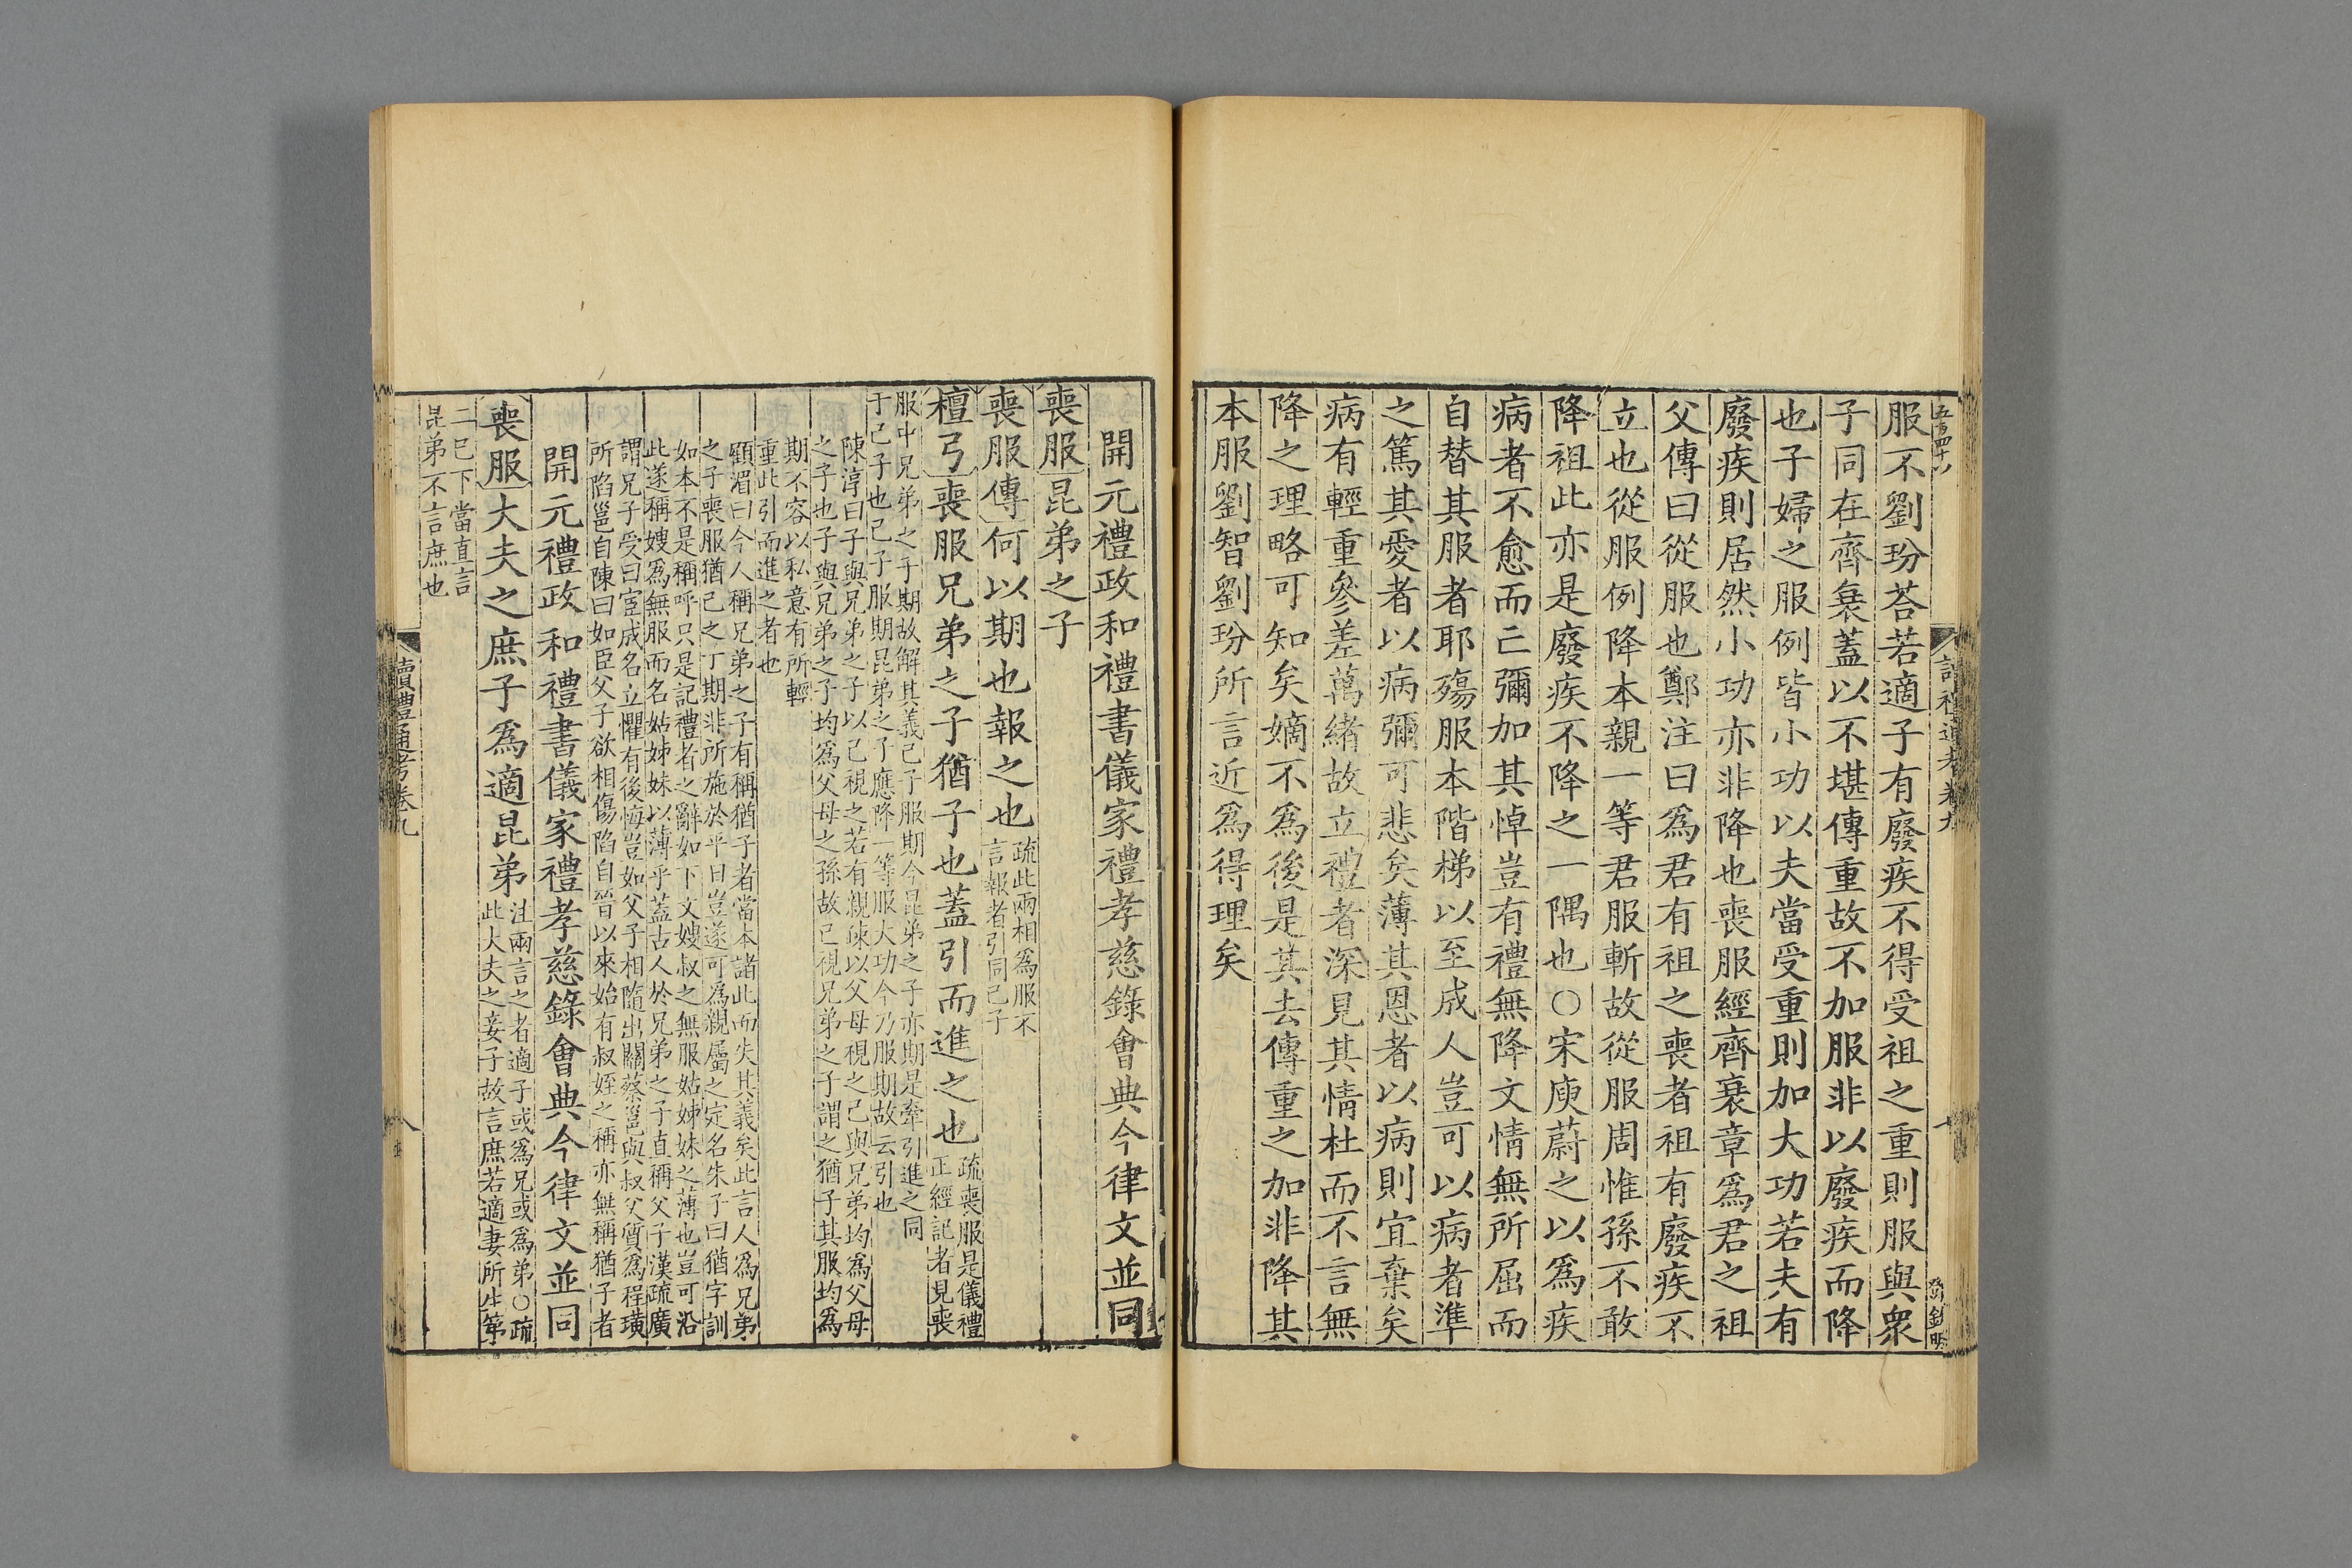 服不劉玢荅若適子有廢疾不得受祖之重則服與衆
子同在齊衰蓋以不堪傳重故不加服非以廢疾而降
也子婦之服例皆小功以夫當受重則加大功若夫有
廢疾則居然小功亦非降也喪服經齊衰章爲君之祖
父傳曰從服也鄭注曰爲君有祖之喪者祖有廢疾不
立也從服例降本親一等君服斬故從服周惟孫不敢
降祖此亦是廢疾不降之一隅也○宋庾蔚之以爲疾
病者不愈而亡彌加其悼豈有禮無降文情無所屈而
自替其服者耶殤服本階梯以至成人豈可以病者準
之篤其愛者以病彌可悲矣薄其恩者以病則宜棄矣
病有輕重參差萬緒故立禮者深見其情杜而不言無
降之理略可知矣嫡不爲後是其去傳重之加非降其
本服劉智劉玢所言近爲得理矣
開元禮政和禮書儀家禮孝慈錄會典今律文並同
喪服昆弟之子
喪服傳何以期也報之也疏此兩相爲服不
言報者引同己子
檀弓喪服兄弟之子猶子也蓋引而進之也疏喪服是儀禮
正經記者見喪
服中兄弟之子期故解其義己子服期今昆弟之子亦期是牽引進之同
于己子也己子服期昆弟之子應降一等服大功今乃服期故云引也
陳淳曰子與兄弟之子以己視之若有親疎以父母視之己與兄弟均爲父母
之子也子與兄弟之子均爲父母之孫故己視兄弟之子謂之猶子其服均爲
期不容以私意有所輕
重此引而進之者也
顧湄曰今人稱兄弟之子有稱猶子者當本諸此而失其義矣此言人爲兄弟
之子喪服猶己之丁期非所施於平日豈遂可爲親屬之定名朱子曰猶字訓
如本不是稱呼只是記禮者之辭如下文嫂叔之無服姑姊妹之薄也豈可沿
此遂稱嫂爲無服而名姑姊妹以薄乎蓋古人於兄弟之子直稱父子漢疏廣
謂兄子受曰宦成名立懼有後悔豈如父子相隨出關蔡邕與叔父質爲程璜
所陷邕自陳曰如臣父子欲相傷陷自晉以來始有叔姪之稱亦無稱猶子者
開元禮政和禮書儀家禮孝慈錄會典今律文並同
喪服大夫之庶子爲適昆弟注兩言之者適子或爲兄或爲弟○疏
此大夫之妾子故言庶若適妻所生第
二已下當直言
昆弟不言庶也
讀禮通考卷九